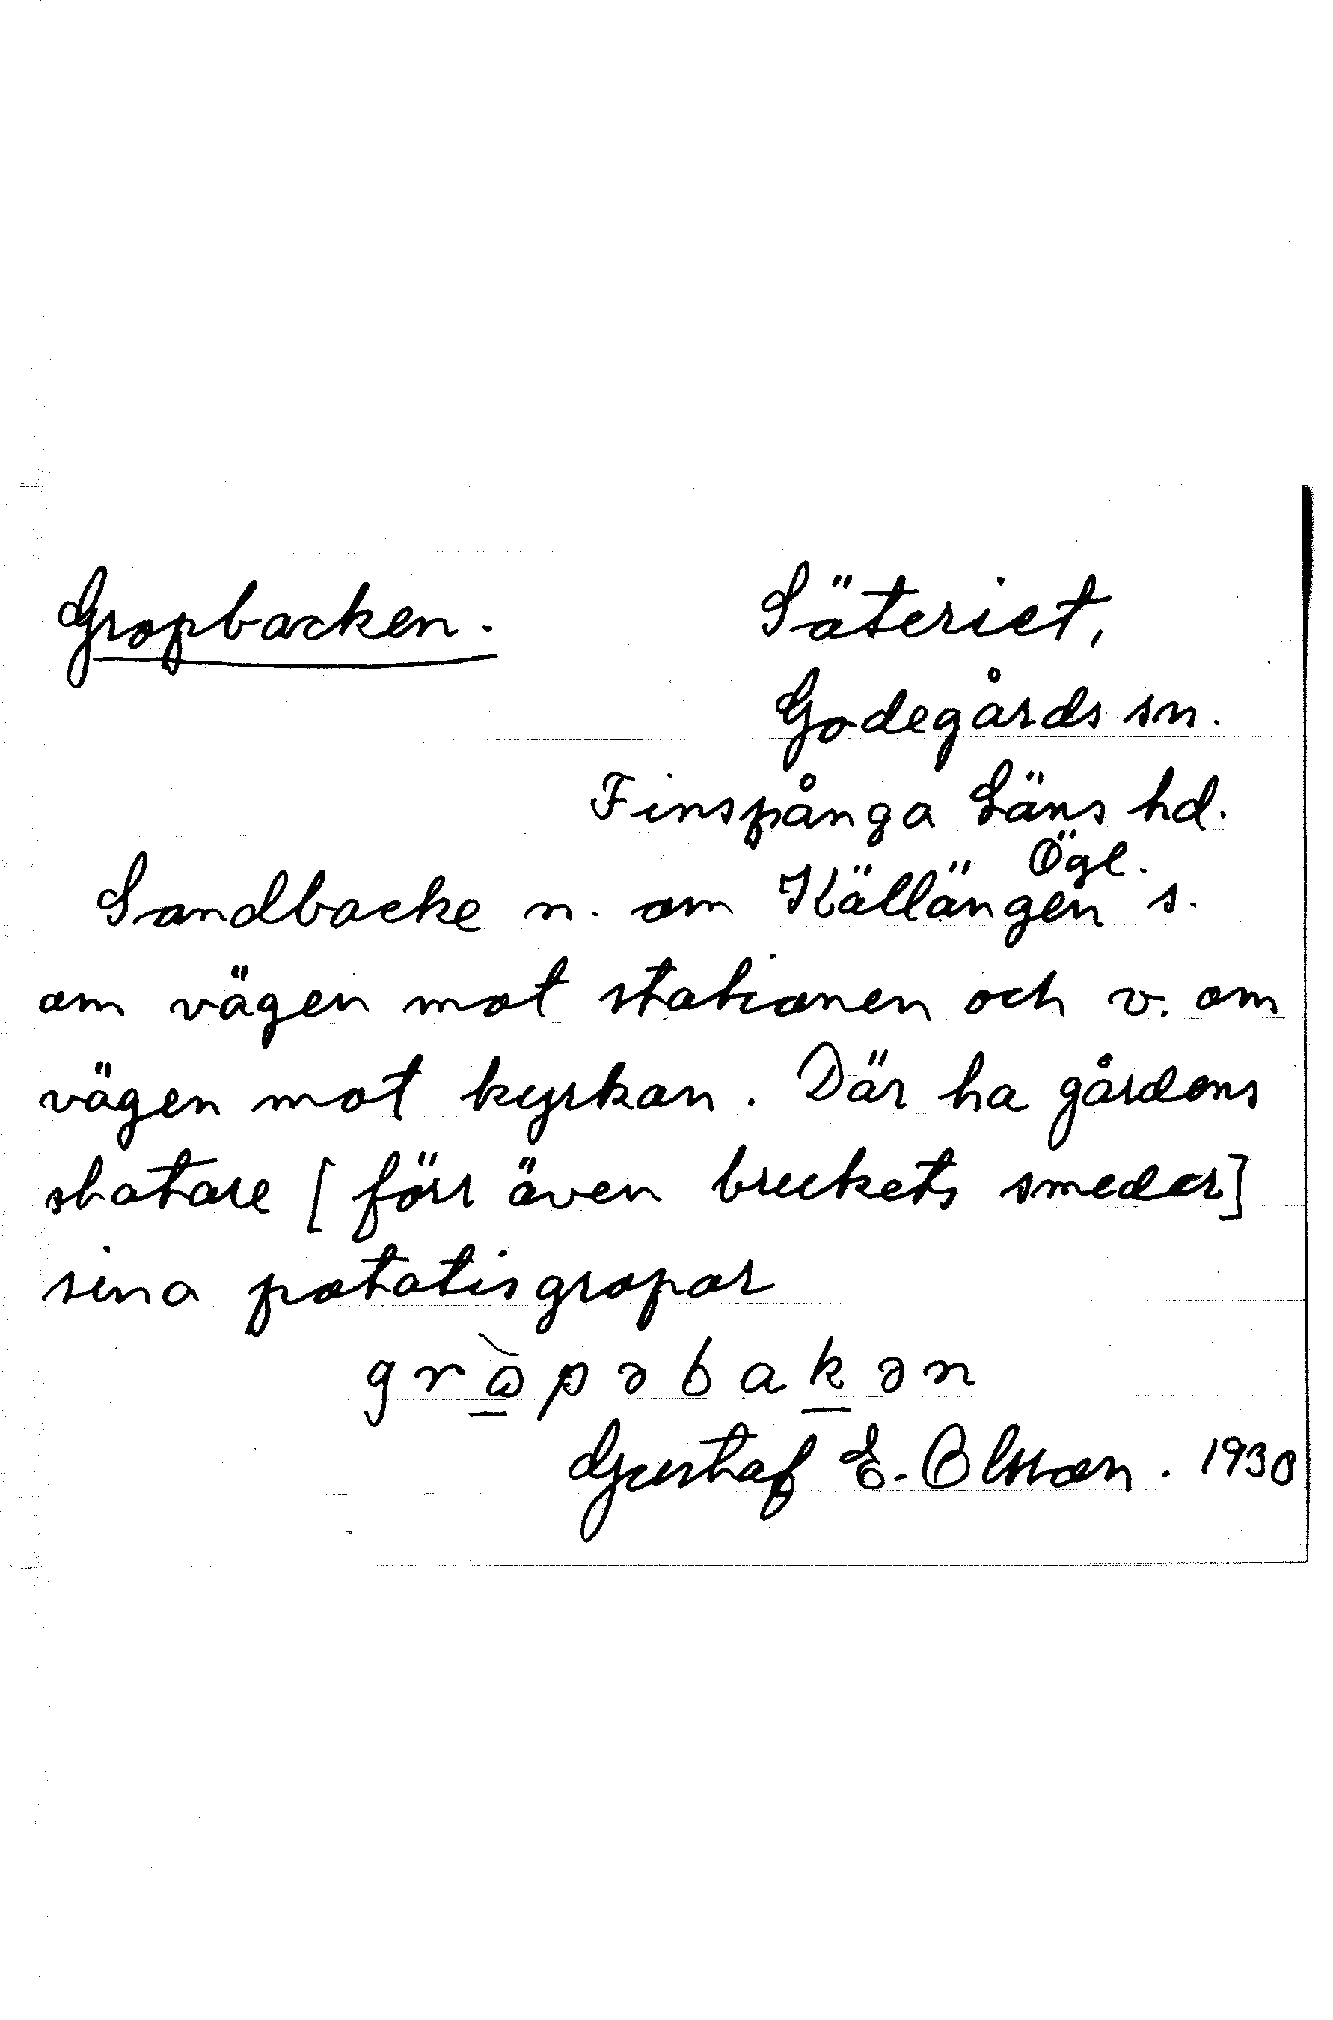 Gropbacken. Säteriet,
Godegårds sn.
Finspånga Läns hd.
Ögl.
Sandbacke n. om Källängen s.
om vägen mot stationen och v. om
vägen mot kyrkan. Där ha gårdens
statare [förr även brukets smeder]
sina potatisgropar
grὼpəbakən
Gustaf E. Olsson. 1930